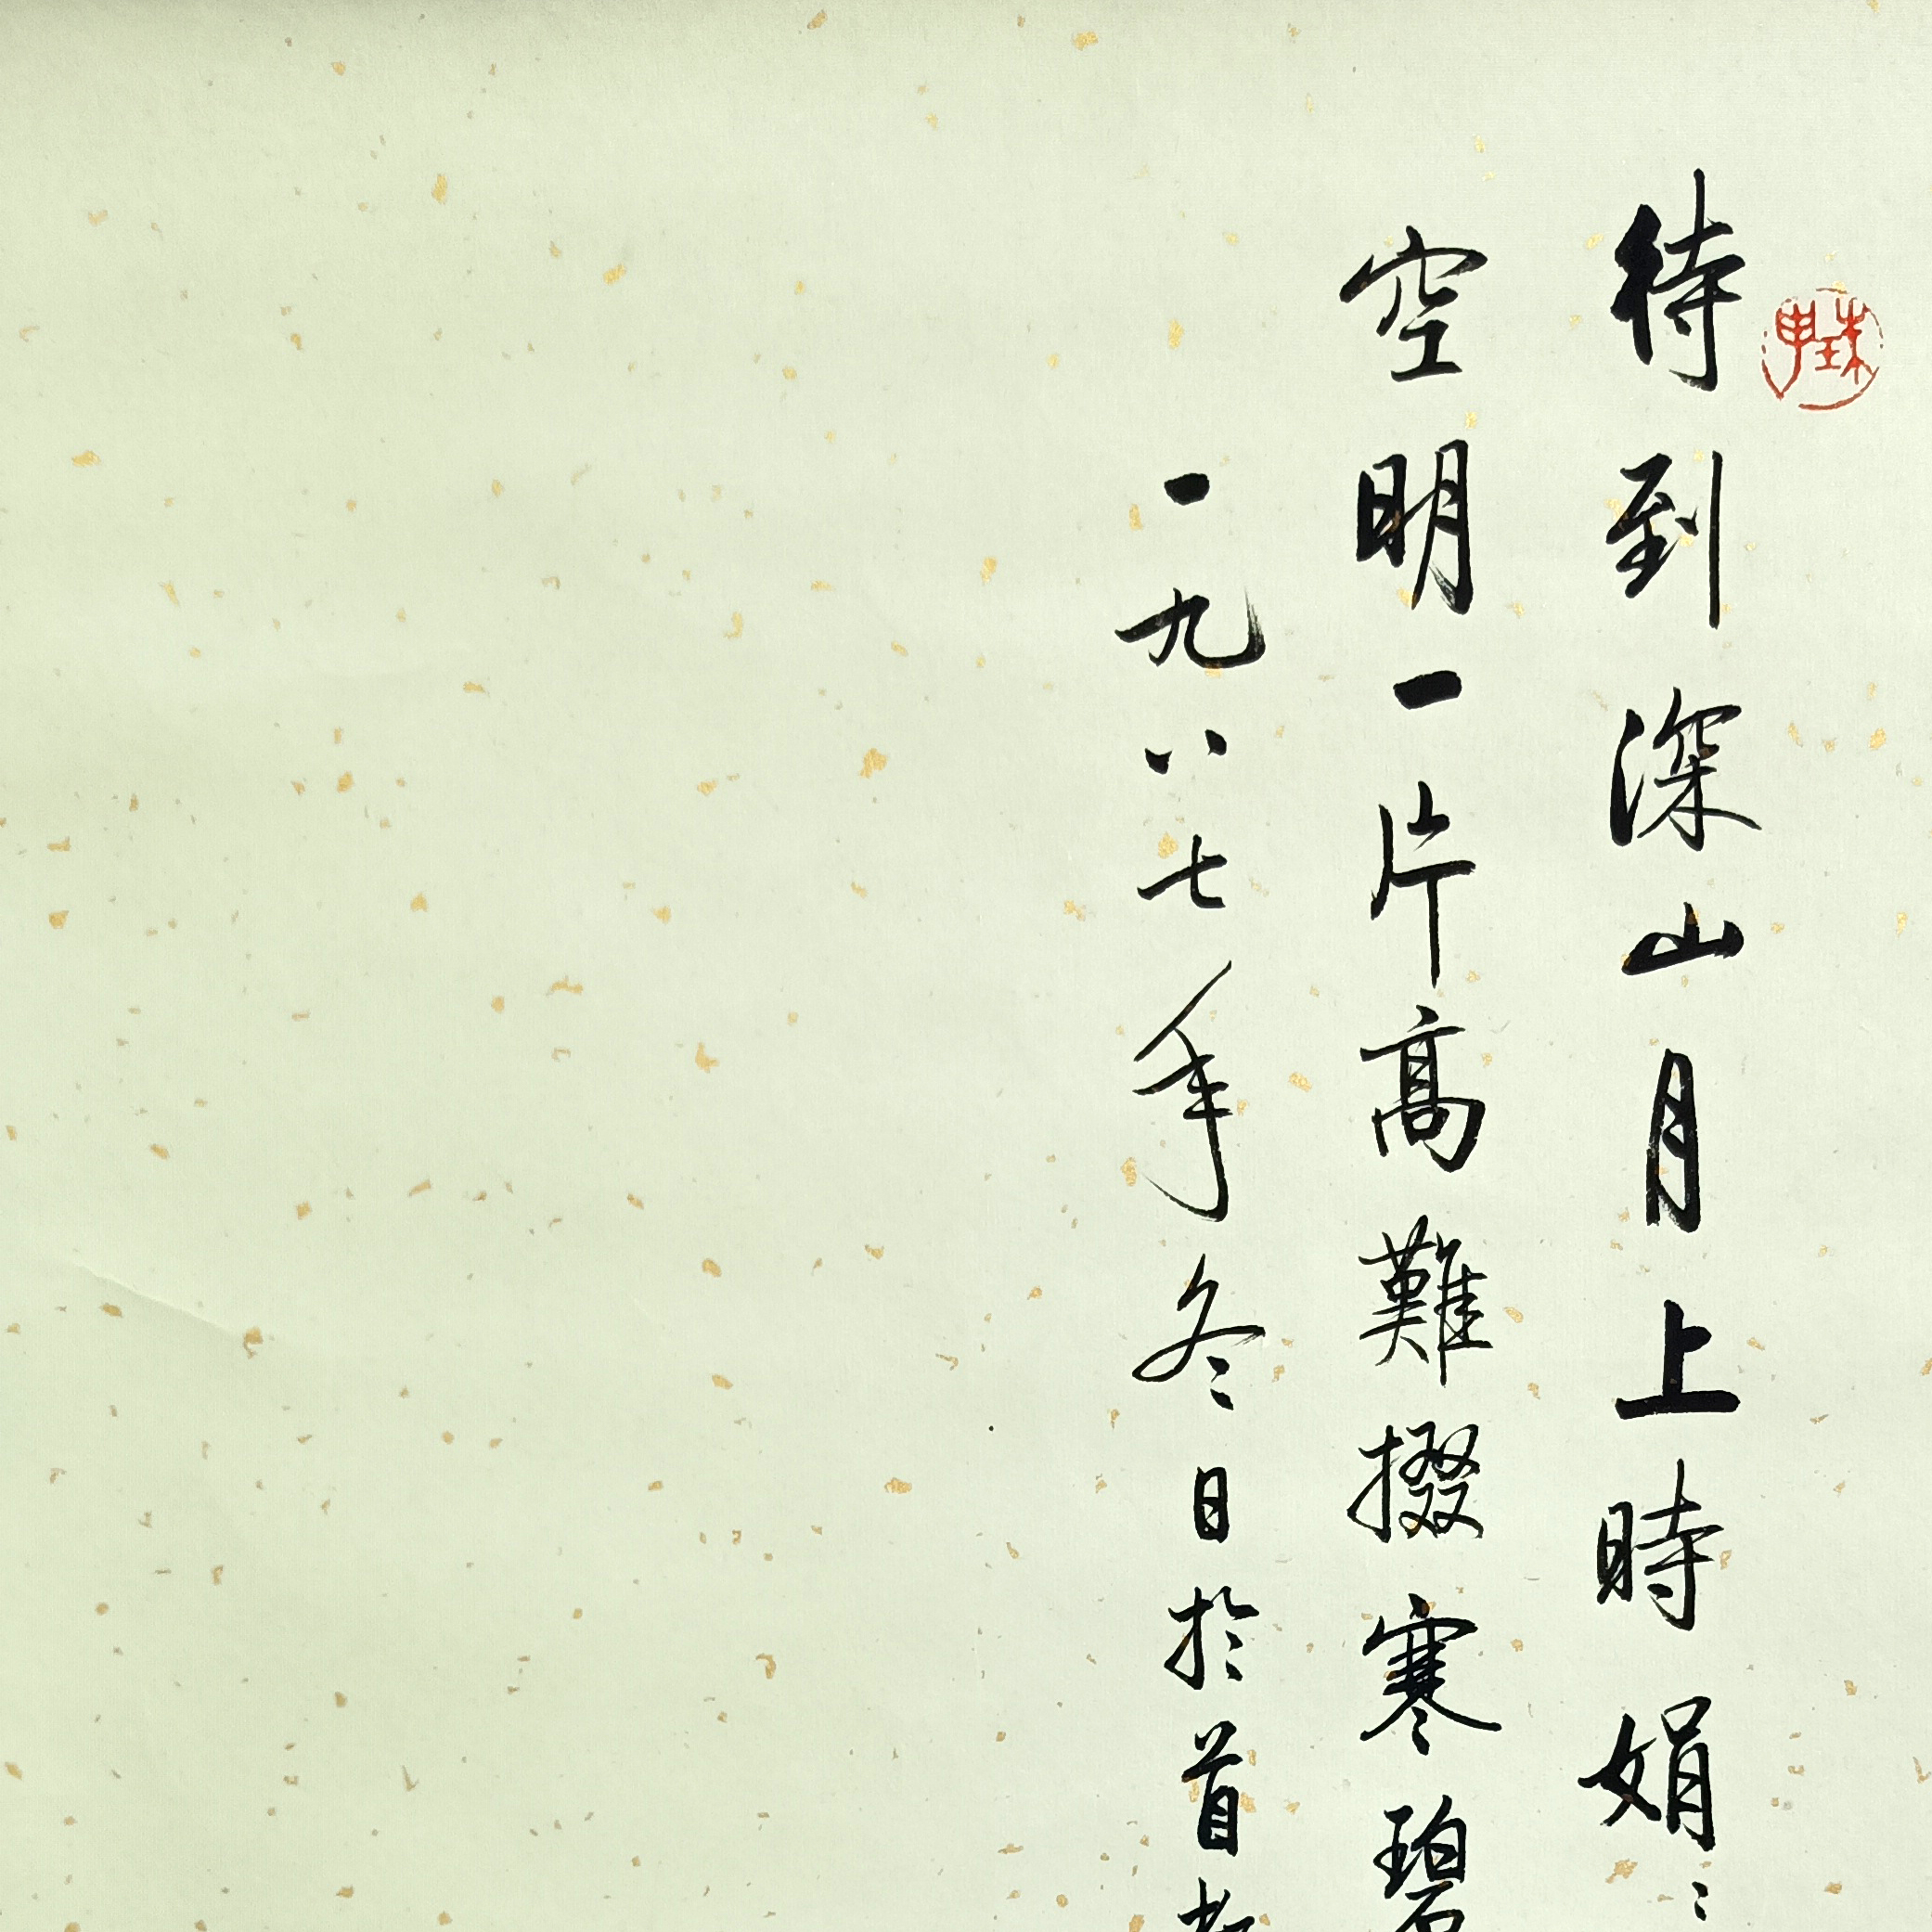 待到深山月上時娟〻
空明一片高難掇寒碧
一九八七年冬日於首都